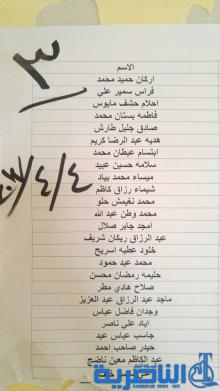 الاسم
٣
اركان حميد محمد
فراس سمير علي
احلام حشف مايوس
فاطمه بستان محمد
صادق جليل طارش
هديه عبد الرضا كريم
ابتسام عيطان محمد
سلامه حسين عبيد
ميساء محمد بياد
شيماء رزاق كاظم
محمد نغيمش حلو
محمد وطن عبد الله
امجد جابر صلال
عبد الرزاق ريكان شريف
خلود عطيه اسريح
محمد عبد حمود
حليمه رمضان محسن
صلاح هادي مطر
ماجد عبد الرزاق عبد العزيز
وجدان فاضل عباس
اياد علي ناصر
جاسب عباس عبد
حيدر صاحب احمد
عبد الكاظم معين ناضح
٤/٤/
الناصرية